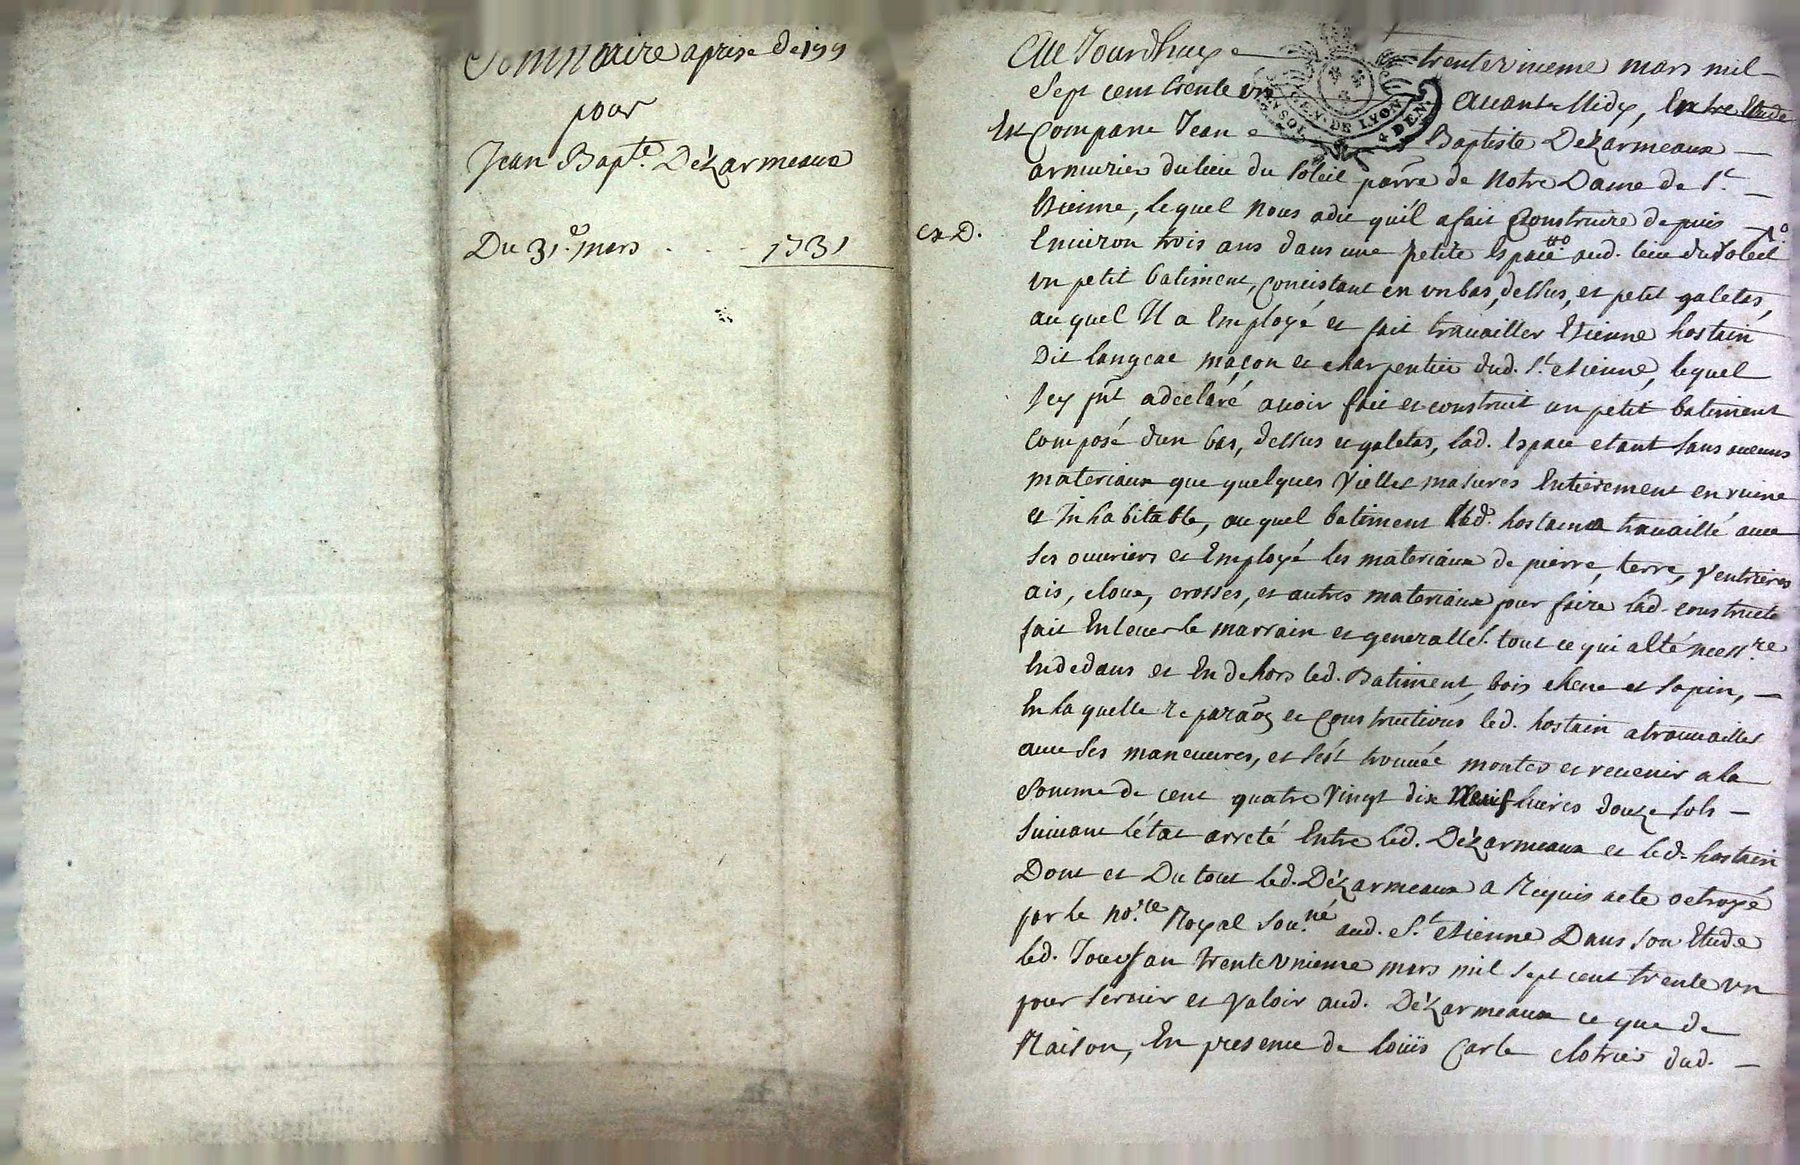 Sommaire aprise de 199
pour
Jean Bapte. Dézarmeaux
Du 31e. mars . . . 1731
Aujourdhuy trente unieme mars mil
Sept cent trente un avant Midy, Entre Etude
GEN. DE LYON
Est Comparu Jean Baptiste Dézarmeaux
armurier du lieu du Soleil parre de Notre Dame de St.
Etienne, lequel Nous a dit quil a fait Construire depuis
C x D.
Environ trois ans dans une petite Espace aud. lieu du Soleil
un petit batiment, Concistant en un bas, dessus, et petit galetas,
auquel Il a Employé et fait travailler Etienne hostain
Dit langeac maçon et charpentier dud. St. etienne, lequel
Icy pnt a declaré avoir fait et construit un petit batiment
Composé dun bas, dessus et galetas, lad. Espace etant sans aucuns
materiaux que quelques Vielles masures Entierement en ruine
et Inhabitable, auquel batiment led. hostain a travaillé avec
Ses ouvriers et Employé les materiaux de pierre, terre, Ventrieres
ais, cloux, crosses, et autres materiaux pour faire lad. constructe
fait Enlever le marrain et generallet. tout ce qui a été necessre
Endedans et Endehors led. Batiment, bois chene et sapin,
En laquelle reparaõn et Constructions led. hostain a travaillé
avec Ses maneuvres, et s'est trouvée monter et revenir a la
Somme de cent quatre Vingt dix Neuf livres douze sols
Suivant l'état arreté Entre led. Dézarmeaux et led. hostain
Dont et Du tout led. Dézarmeaux a Requis acte octroyé
par le nore. Royal sousné. aud. St. etienne Dans son Etude
led. Jour et an trente unieme mars mil sept cent trente un
pour servir et Valoir aud. Dézarmeaux ce que de
Raison, En presence de Louis Carle clotrier dud.